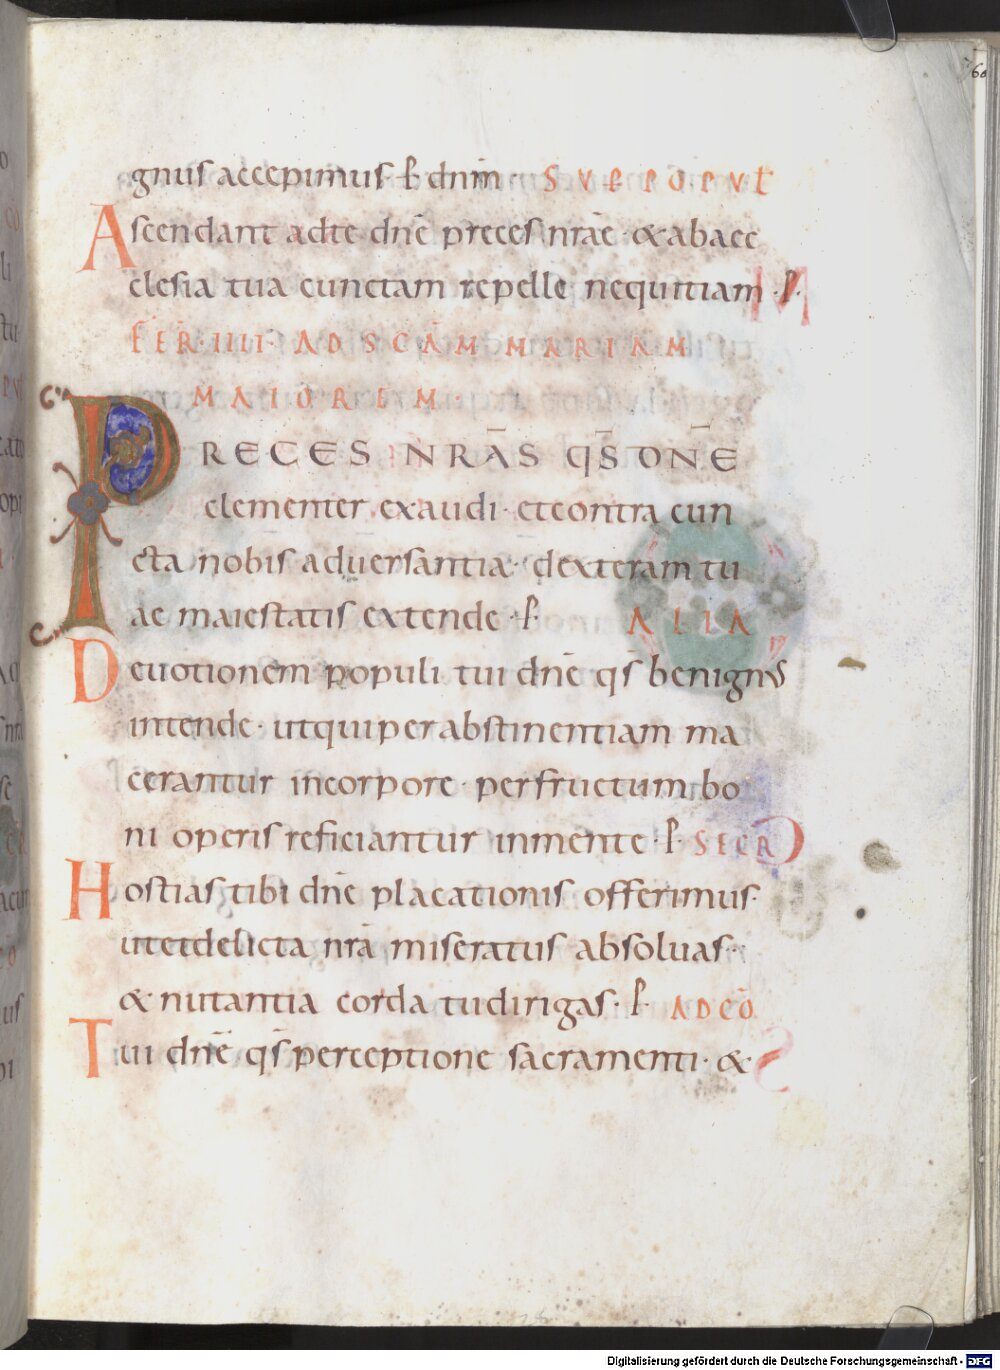 60
gnus accepimus · ꝑ dnm̄ · SUP POPUL
Ascendant ad te dnē preces nrāe · & ab aec
clesia tua cunctam repelle nequitiam · ꝑ ·
FER̄ · IIII · AD SCĀM MARIAM
MAIOREM ·
PRECES NRĀS QS̄ DNĒ
clementer exaudi · et contra cun
cta nobis adversantia · dexteram tu
ae maiestatis extende · ꝑ · ALIA
Devotionem populi tui dnē qs̄ benignus
intende · ut qui per abstinentiam ma
cerantur in corpore · per fructum bo
ni operis reficiantur in mente · ꝑ · SECR
Hostias tibi dnē placationis offerimus ·
ut et delicta nrā miseratus absoluas ·
& nutantia corda tu dirigas · ꝑ · AD CŌ
Tui dnē qs̄ perceptione sacramenti · &
Digitalisierung gefördert durch die Deutsche Forschungsgemeinschaft - DFG